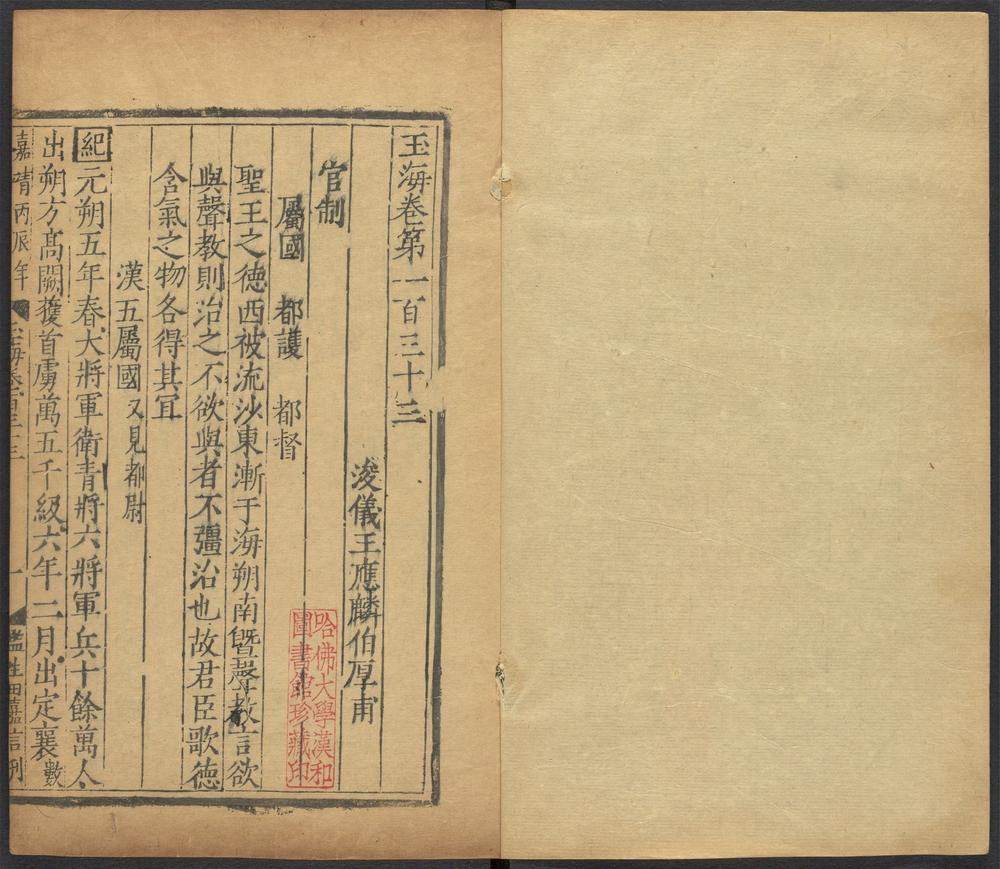 玉海卷第一百三十三
浚儀王應麟伯厚甫
官制
屬國 都護 都督
聖王之德西被流沙東漸于海朔南曁聲教言欲
與聲教則治之不欲與者不彊治也故君臣歌德
含氣之物各得其冝
漢五屬國又見都尉
紀元朔五年春大將軍衛青將六將軍兵十餘萬人
出朔方高闕獲首虜萬五千級六年二月出定襄數
嘉靖丙辰年 玉海卷一百三十三 一 監生田嘉言刊
哈佛大學漢和
圖書館珍藏印